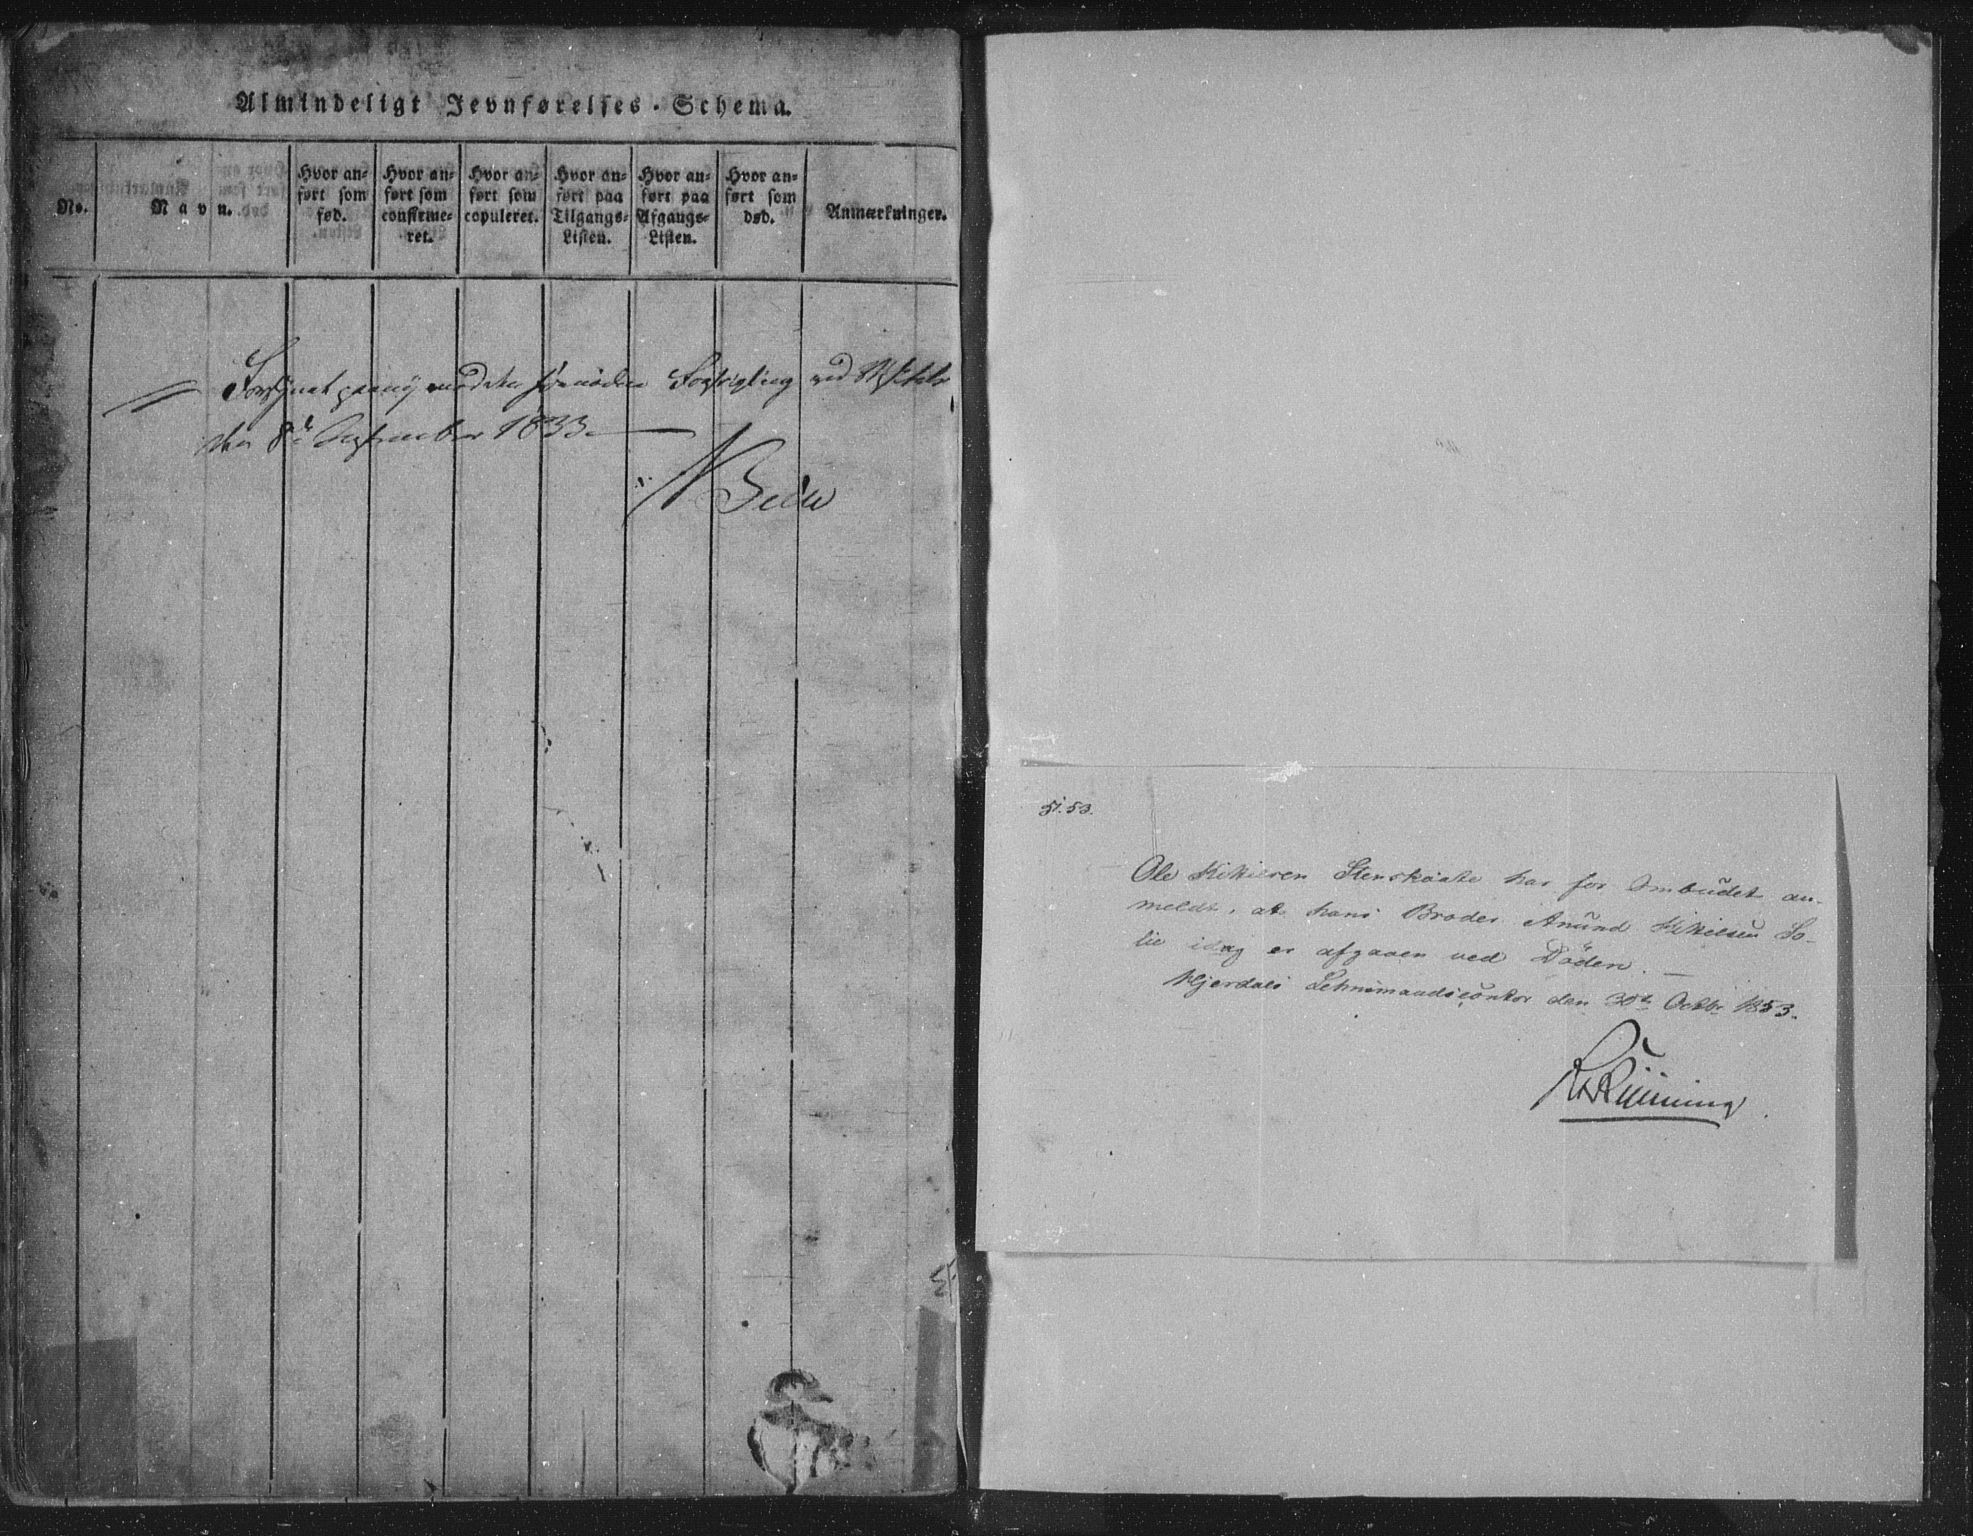 Almindeligt Jevnførelses-Schema.
No.
Navn.
Hvor an-
ført som
fød.
Hvor an-
ført som
confirme-
ret.
Hvor an-
ført som
copuleret.
Hvor an-
ført paa
Tilgangs-
Listen.
Hvor an-
ført paa
Afgangs-
Listen.
Hvor an-
ført som
død.
Anmærkninger.
ved
den 8de September 1833.
51.53.
Ole Kittilsen Stenskaate har for Ombudet an-
meldt, at hans Broder Anund Kittilsen So-
lie idag er afgaaen ved Döden. —
Hjerdals Lehnsmandscontor den 30te Octbr 1853.